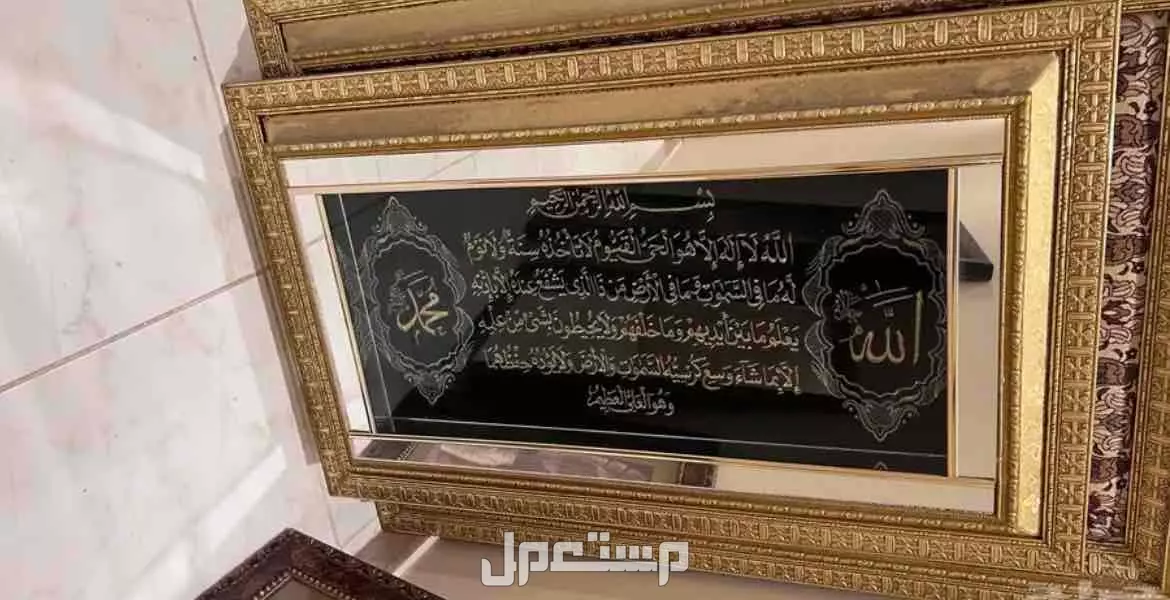 بِسْمِ اللَّهِ الرَّحْمَنِ الرَّحِيمِ
اللَّهُ لَا إِلَهَ إِلَّا هُوَ الْحَيُّ الْقَيُّومُ لَا تَأْخُذُهُ سِنَةٌ وَلَا نَوْمٌ
لَهُ مَا فِي السَّمَوَاتِ وَمَا فِي الْأَرْضِ مَنْ ذَا الَّذِي يَشْفَعُ عِنْدَهُ إِلَّا بِإِذْنِهِ
يَعْلَمُ مَا بَيْنَ أَيْدِيهِمْ وَمَا خَلْفَهُمْ وَلَا يُحِيطُونَ بِشَيْءٍ مِنْ عِلْمِهِ
إِلَّا بِمَا شَاءَ وَسِعَ كُرْسِيُّهُ السَّمَوَاتِ وَالْأَرْضَ وَلَا يَئُودُهُ حِفْظُهُمَا
وَهُوَ الْعَلِيُّ الْعَظِيمُ
اللَّه
مُحَمَّد
مستعمل